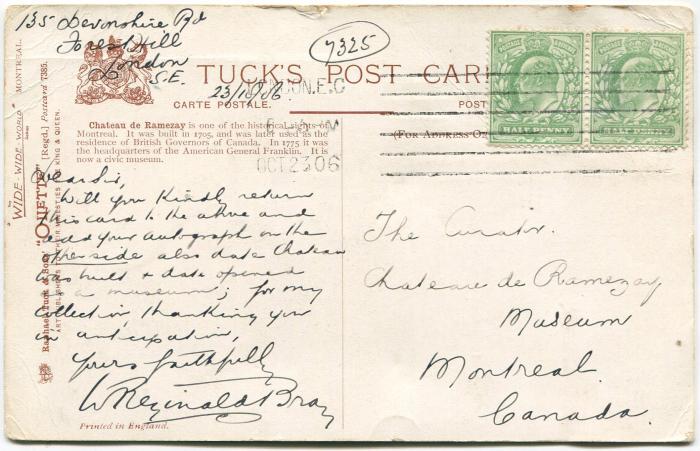 135 Devonshire Rd
Forest Hill
London
S.E.
23/10/06
7325
TUCK'S POST CAR
CARTE POSTALE.
POST
(FOR ADDRESS O
LONDON.E.C
OCT 23 06
HALF PENNY
HALF PENNY
Chateau de Ramezay is one of the historical sights of
Montreal. It was built in 1705, and was later used as the
residence of British Governors of Canada. In 1775 it was
the headquarters of the American General Franklin. It is
now a civic museum.
"WIDE-WIDE-WORLD" MONTREAL.
Raphael Tuck & Sons' "OILETTE" [Regd.] Postcard 7385.
ART PUBLISHERS TO THEIR MAJESTIES THE KING & QUEEN.
Dear Sir,
Will you kindly return
this card to the above and
add your autograph on the
other side also date Chateau
was built & date opened
a museum; for my
collection, thanking you
in anticipation,
Yours faithfully
W Reginald Bray
Printed in England.
The Curator.
Chateau de Ramezay
Museum
Montreal.
Canada.